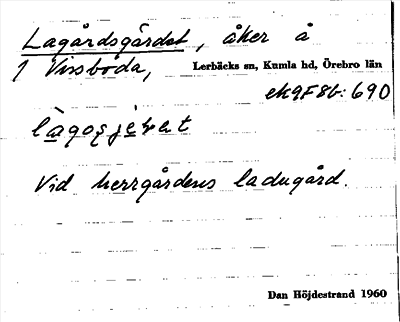 Lagårdsgärdet, åker å
Vissboda, Lerbäcks sn, Kumla hd, Örebro län
ek9F8b: 690
Vid herrgårdens ladugård.
Dan Höjdestrand 1960